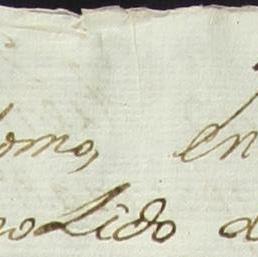 omo, en
oLido d